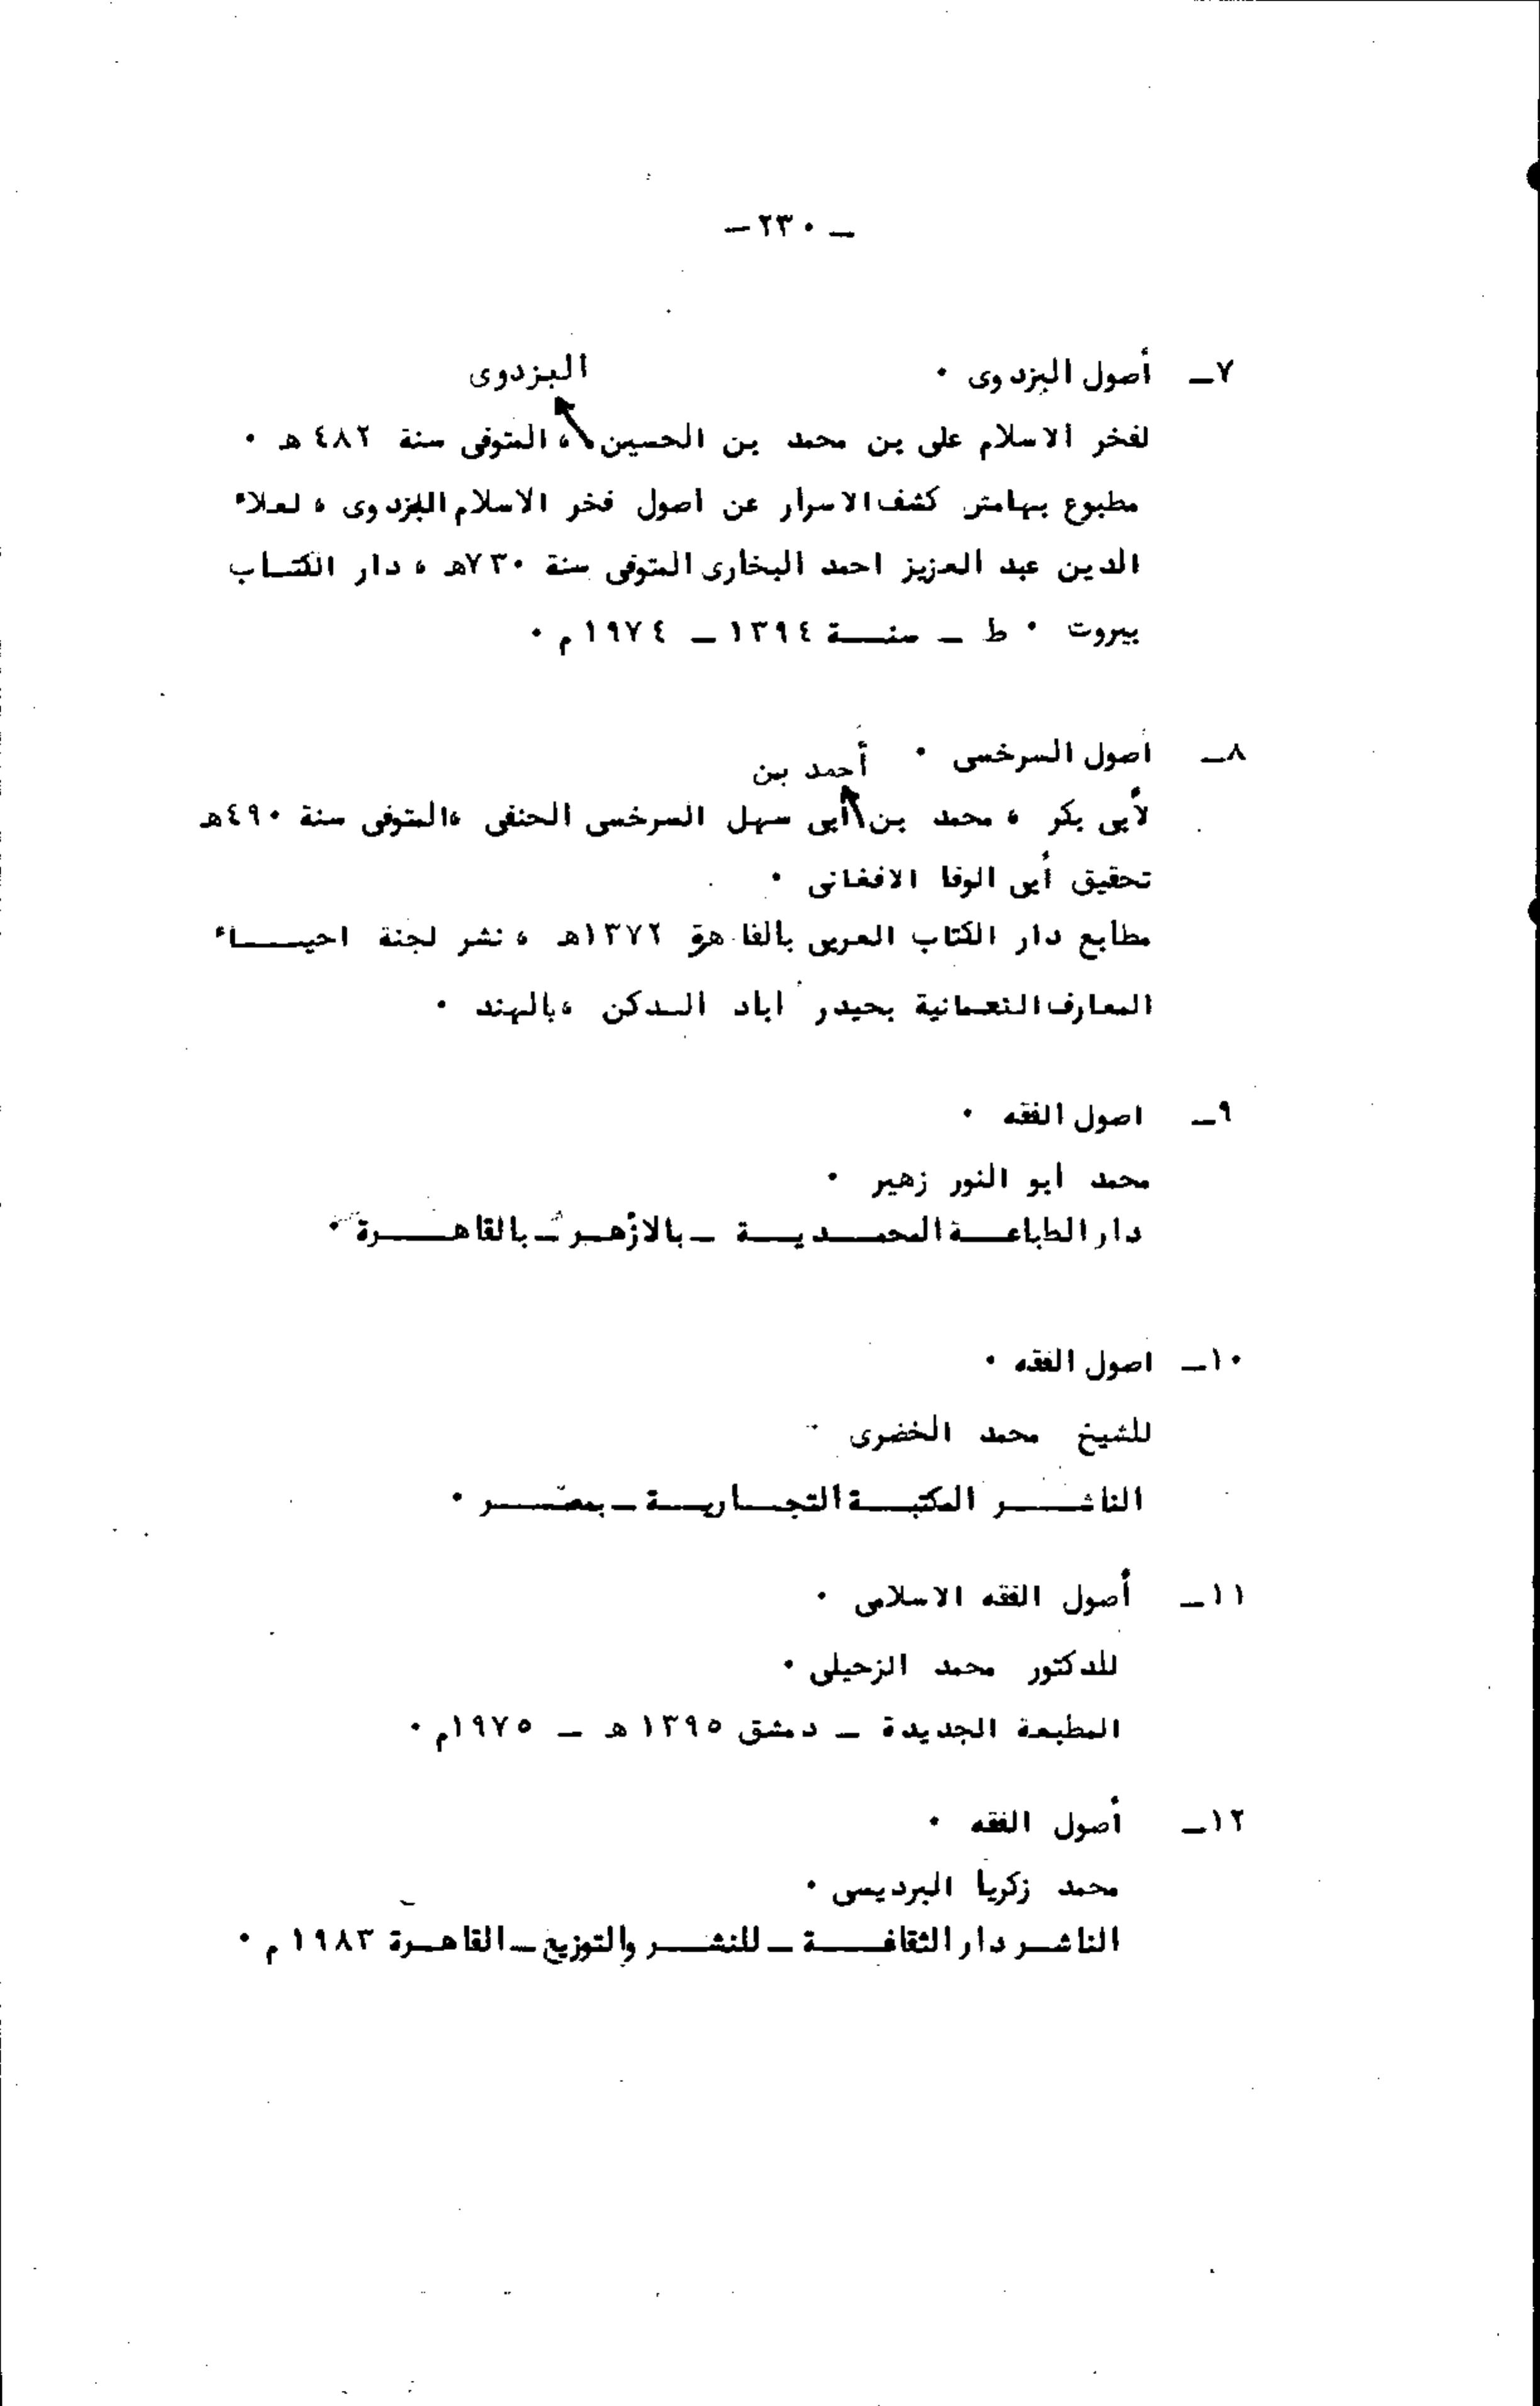 ـ ٢٣٠ ـ
٧ـ أصول البزدوى ٠
البزدوى
لفخر الاسلام على بن محمد بن الحسين ، المتوفى سنة ٤٨٢ هـ ٠
مطبوع بهامش كشف الاسرار عن اصول فخر الاسلام البزدوى ، لعلاء
الدين عبد العزيز احمد البخارى المتوفى سنة ٧٣٠هـ ، دار الكتـاب
بيروت ٠ ط ـ سنـــة ١٣٩٤ ـ ١٩٧٤ م ٠
٨ـ اصول السرخسى ٠
أحمد بن
لأبى بكر ، محمد بن أبى سهل السرخسى الحنفى ،المتوفى سنة ٤٩٠هـ
تحقيق أبى الوفا الافغانى ٠
مطابع دار الكتاب العربى بالقاهرة ١٣٧٢هـ ، نشر لجنة احيـــاء
المعارف النعمانية بحيدر اباد الدكن ،بالهند ٠
٩ـ اصول الفقه ٠
محمد ابو النور زهير ٠
دار الطباعـــة المحمـــديـــة ـ بالازهـر ـ بالقاهـــرة ٠
١٠ـ اصول الفقه ٠
للشيخ محمد الخضرى ٠
الناشـــر المكتبـــة التجـــاريـــة ـ بمصـــر ٠
١١ـ أصول الفقه الاسلامى ٠
للدكتور محمد الزحيلى ٠
المطبعة الجديدة ـ دمشق ١٣٩٥ هـ ـ ١٩٧٥م ٠
١٢ـ أصول الفقه ٠
محمد زكريا البرديسى ٠
الناشـر دار الثقافـــة ـ للنشـــر والتوزيع ـ القاهـرة ١٩٨٣ م ٠